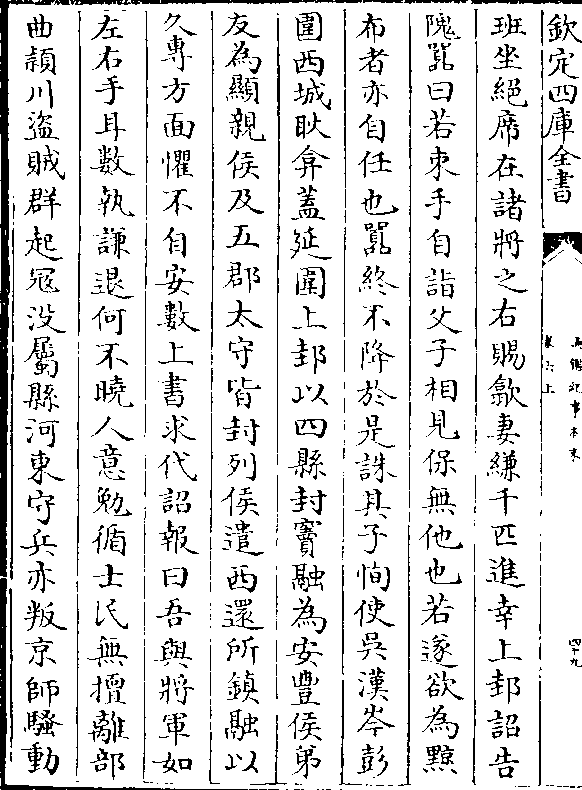 欽定四庫全書
通鑑紀事本末
卷六上
四十九
班坐絕席在諸將之右賜歙妻縑千匹進幸上邽詔告
隗囂曰若束手自詣父子相見保無他也若遂欲為黥
布者亦自任也囂終不降於是誅其子恂使吳漢岑彭
圍西城耿弇蓋延圍上邽以四縣封竇融為安豐侯弟
友為顯親侯及五郡太守皆封列侯遣西還所鎮融以
久專方面懼不自安數上書求代詔報曰吾與將軍如
左右手耳數執謙退何不曉人意勉循士民無擅離部
曲潁川盜賊群起寇没屬縣河東守兵亦叛京師騷動